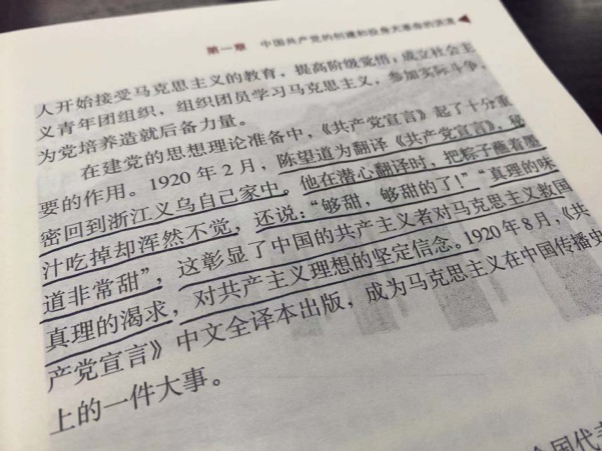 第一章 中国共产党的创建和投身大革命的洪流
人开始接受马克思主义的教育，提高阶级觉悟；成立社会主
义青年团组织，组织团员学习马克思主义，参加实际斗争，
为党培养造就后备力量。
在建党的思想理论准备中，《共产党宣言》起了十分重
要的作用。1920年2月，陈望道为翻译《共产党宣言》，秘
密回到浙江义乌自己家中。他在潜心翻译时，把粽子蘸着墨
汁吃掉却浑然不觉，还说：“够甜，够甜的了！”“真理的味
道非常甜”，这彰显了中国的共产主义者对马克思主义救国
真理的渴求，对共产主义理想的坚定信念。1920年8月，《共
产党宣言》中文全译本出版，成为马克思主义在中国传播史
上的一件大事。
全国代表